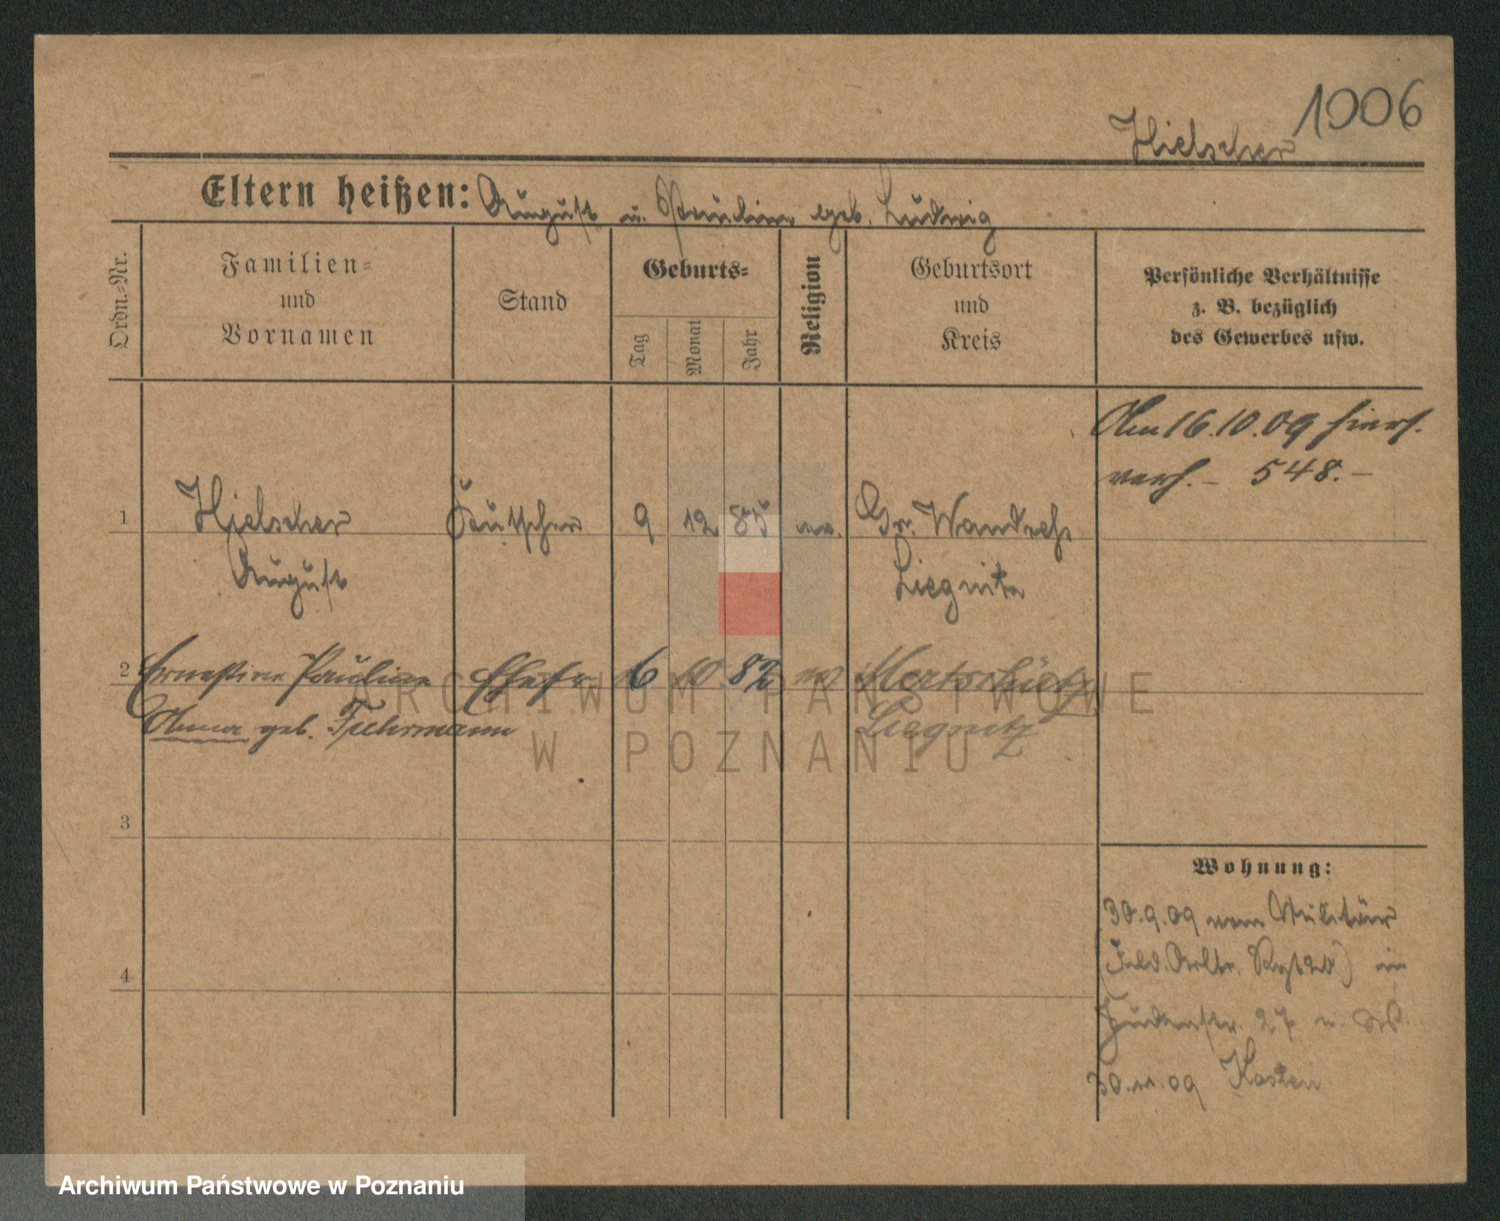 1006
Hielscher
Eltern heißen: August u. Pauline geb. Ludwig
Ordn.-Nr.
Familien-
und
Vornamen
Stand
Geburts-
Tag
Monat
Jahr
Religion
Geburtsort
und
Kreis
Persönliche Verhältnisse
z. B. bezüglich
des Gewerbes usw.
Am 16.10.09 hier
verh. – 548.–
1 Hielscher 9 12 85 Gr. Wandrehs
August Liegnitz
2 Ernestine Pauline Ehefr. 6 10 82 Mertschütz
Anna geb. Fuhrmann Liegnitz
3
4
Wohnung:
30.9.09 vom Militär
Feld. Artltr. Rgt 20) in
27 n.
30.11.09 Kosten
ARCHIWUM PAŃSTWOWE
W POZNANIU
Archiwum Państwowe w Poznaniu